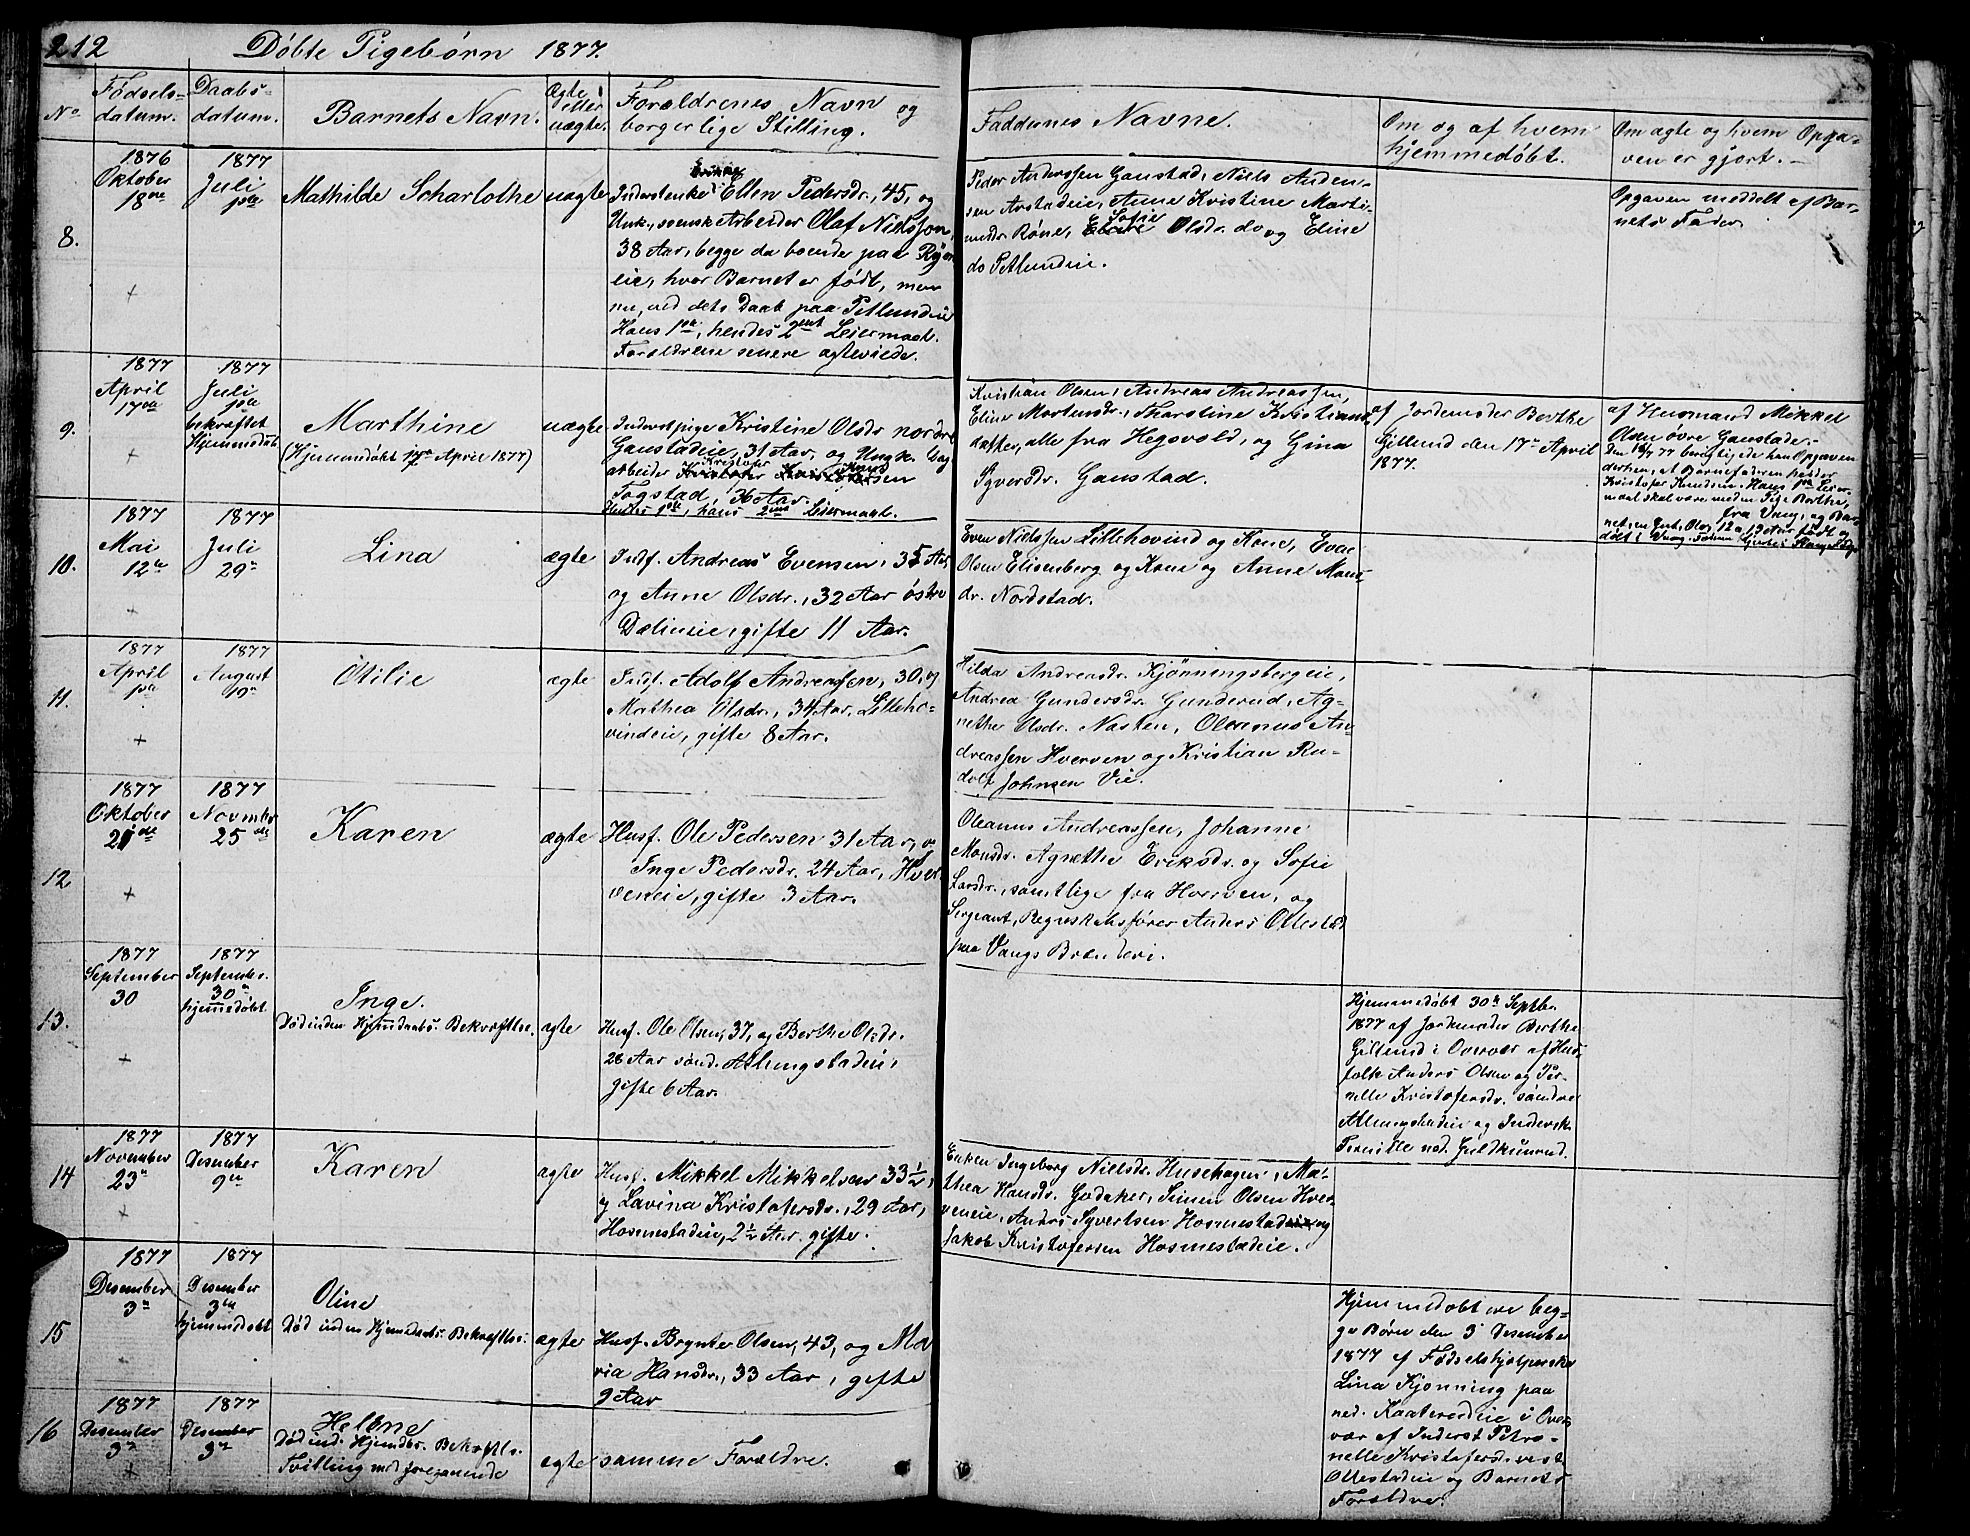 212 Døbte Pigebørn 1877.
No
Fødsels-
datum.
Daabs-
datum.
Barnets Navn.
Ægte
eller
uægte.
Forældrenes Navn og
borgerlige Stilling.
Faddernes Navne.
Om og af hvem
hjemmedøbt.
Om ægte og hvem Opga-
ven er gjort.
8.
1876
Oktober
18de
1877
Juli
1ste
Mathilde Scharlothe
uægte
Inderstenke Ellen Pedersdr., 45, og
Unk., svensk Arbeider Olaf Nielsson,
38 Aar, begge da boende paa
eie, hvor Barnet er født, men
nu, ved dets Daab paa Petlundeie
Hans 1ste, hendes 2det Leiermaal.
Forældrene senere ægteviede.
Peder Anderssen Gaustad, Niels Ander-
sen Arstadeie, Anne Kristine Marti-
nusdr. Røne, Sofie Olsdr. do og Eline
do Petlundeie.
Opgaven meddelt af Bar-
nets Fader.
9.
1877
April
17de
1877
Juli
1ste
bekræftet
Hjemmedåb
Marthine
(Hjemmedøbt 17de April 1877)
uægte
Inderstpige Kristine Olsdr nordre
Gaustadeie, 31 Aar, og Ungk. Dag
arbeider Kristofer Knudsen
Fogstad, 36 Aar.
Hendes 1ste, hans 2det Leiermaal.
Kristian Olsen, Andreas Andreassen,
Eline Mortensdr., Thorstine Kristians-
datter, alle fra Hegsvold, og Gina
Syversdr. Gaustad.
af Jordemoder Berthe
Gillund den 17de April
1877.
af Husmand Mikkel
Olsen øvre Gaustade.
Den 16/9 77 berigtigede han Opgaven
derhen, at Barnefaderen hedder
Kristofer Knudsen. Hans 1ste Leier-
maal skal være med en Pige Berthe,
fra Vang, og Bar-
net, en Gut, Olaf, 12 a 13 Aar, født og
døbt i Vang.
10.
1877
Mai
12te
1877
Juli
29de
Lina
ægte
Indf. Andreas Evensen, 35 Aar,
og Anne Olsdr., 32 Aar østre
Dælineie, gifte 11 Aar.
Even Nielssen Lillehovind og Kone, Even
Olsen Elisenberg og Kone og Anne Mons-
dr. Nordstad.
11.
1877
April
1ste
1877
August
19de
Otilie
ægte
Indf. Adolf Andreassen, 30, og
Mathea Olsdr., 34 Aar, Lilleho-
vindeie, gifte 8 Aar.
Hilda Andreasdr. Kjønningsbergeie,
Andrea Gundersdr. Gunderud, Ag-
nethe Olsdr. Nasten, Oleanus An-
dreassen Hverven og Kristian Ru-
dolf Johnsen Vie.
12
1877
Oktober
21de
1877
November
25de
Karen
ægte
Husf. Ole Pedersen 31 Aar, og
Inge Pedersdr. 24 Aar, Hver-
veneie, gifte 3 Aar.
Oleanus Andreassen, Johanne
Monsdr. Agnethe Eriksdr. og Sofie
Larsdr., samtlige fra Hverven, og
Sergeant, Regnskabsfører Anders Ollestad
paa Vangs Brænderi.
13.
1877
September
30
1877
September.
30de
hjemmedøbt
Inge.
Død inden Hjemdaabs. Bekræftelse.
ægte
Husf. Ole Olsen, 37, og Berthe Olsdr.
28 Aar sønd. Atlungstadeie,
gifte 6 Aar.
Hjemmedøbt 30te Septbr.
1877 af Jordemoder Berthe
Gillund i Overvær af Hus-
folk Anders Olsen og Per-
nelle Kristofersdr. søndre
Atlungstadeie og Indersk.
Pernille ned. Guldkunrud.
14
1877
November
23de
1877
Desember
9de
Karen
ægte
Husf. Mikkel Mikkelsen 33½,
og Lavina Kristofersdr., 29 Aar,
Hosmestadeie, 2½ Aar. gifte.
Enken Ingeborg Nielsdr. Husehagen, Ma-
thea Hansdr. Godaker, Simen Olsen Hver-
veneie, Anders Syvertsen Hosmestadeie og
Jakob Kristofersen Hosmestadeie.
15
1877
Desember
3de
1877
Desember
3die
hjemmedøbt
Oline
Død inden Hjemdaabs. Bekræftelse.
ægte
Husf. Brynte Olsen, 43, og Ma
ria Hansdr., 33 Aar, gifte
9 Aar
Hjemmedøbt ere beg-
ge Børn den 3' Desember
1877 af Fødselshjelperske
Lina Kjønning paa
ned. Kaaterudeie i Over-
vær af Inderst Petro-
nelle Kristofersd. vest
Ollestadeie og Barnets
Forældre.
16
1877
Desember
3de
1877
Desember
3de
Helene
Død ind. Hjemdbs. Bekræftls.
Tvilling med foregaaende
ægte
samme Forældre.